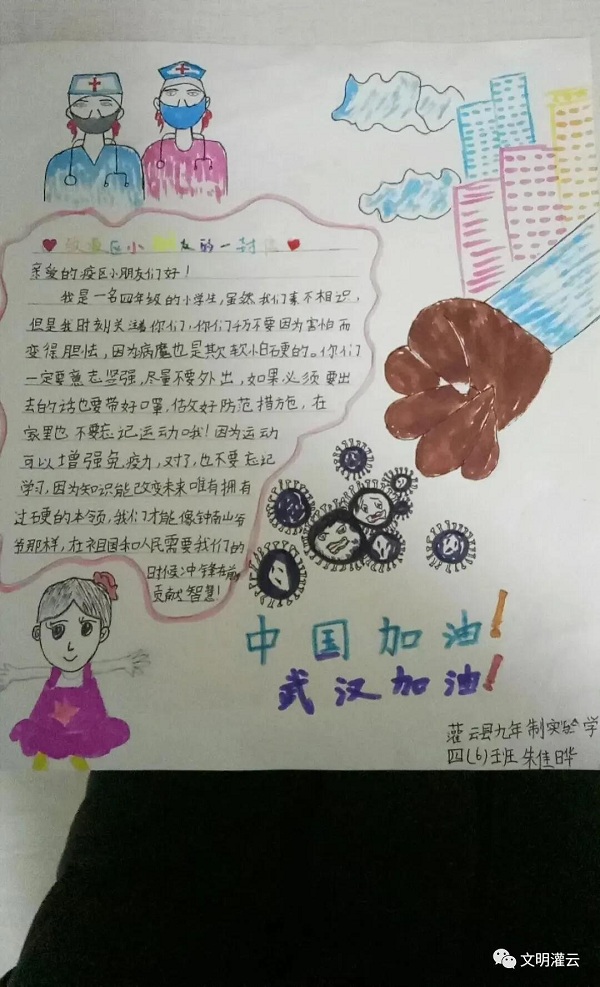 致疫区小朋友的一封信
亲爱的疫区小朋友们好!
我是一名四年级的小学生,虽然我们素不相识,
但是我时刻关注你们,你们千万不要因为害怕而
变得胆怯,因为病魔也是欺软怕硬的。你们
一定要意志坚强,尽量不要外出,如果必须要出
去的话也要带好口罩,做好防范措施,在
家里也不要忘记运动哦!因为运动
可以增强免疫力,对了,也不要忘记
学习,因为知识能改变未来唯有拥有
过硬的本领,我们才能像钟南山爷
爷那样,在祖国和人民需要我们的
时候冲锋在前
贡献智慧!
中国加油!
武汉加油!
灌云县九年制实验学
四(6)班 朱佳晔
文明灌云